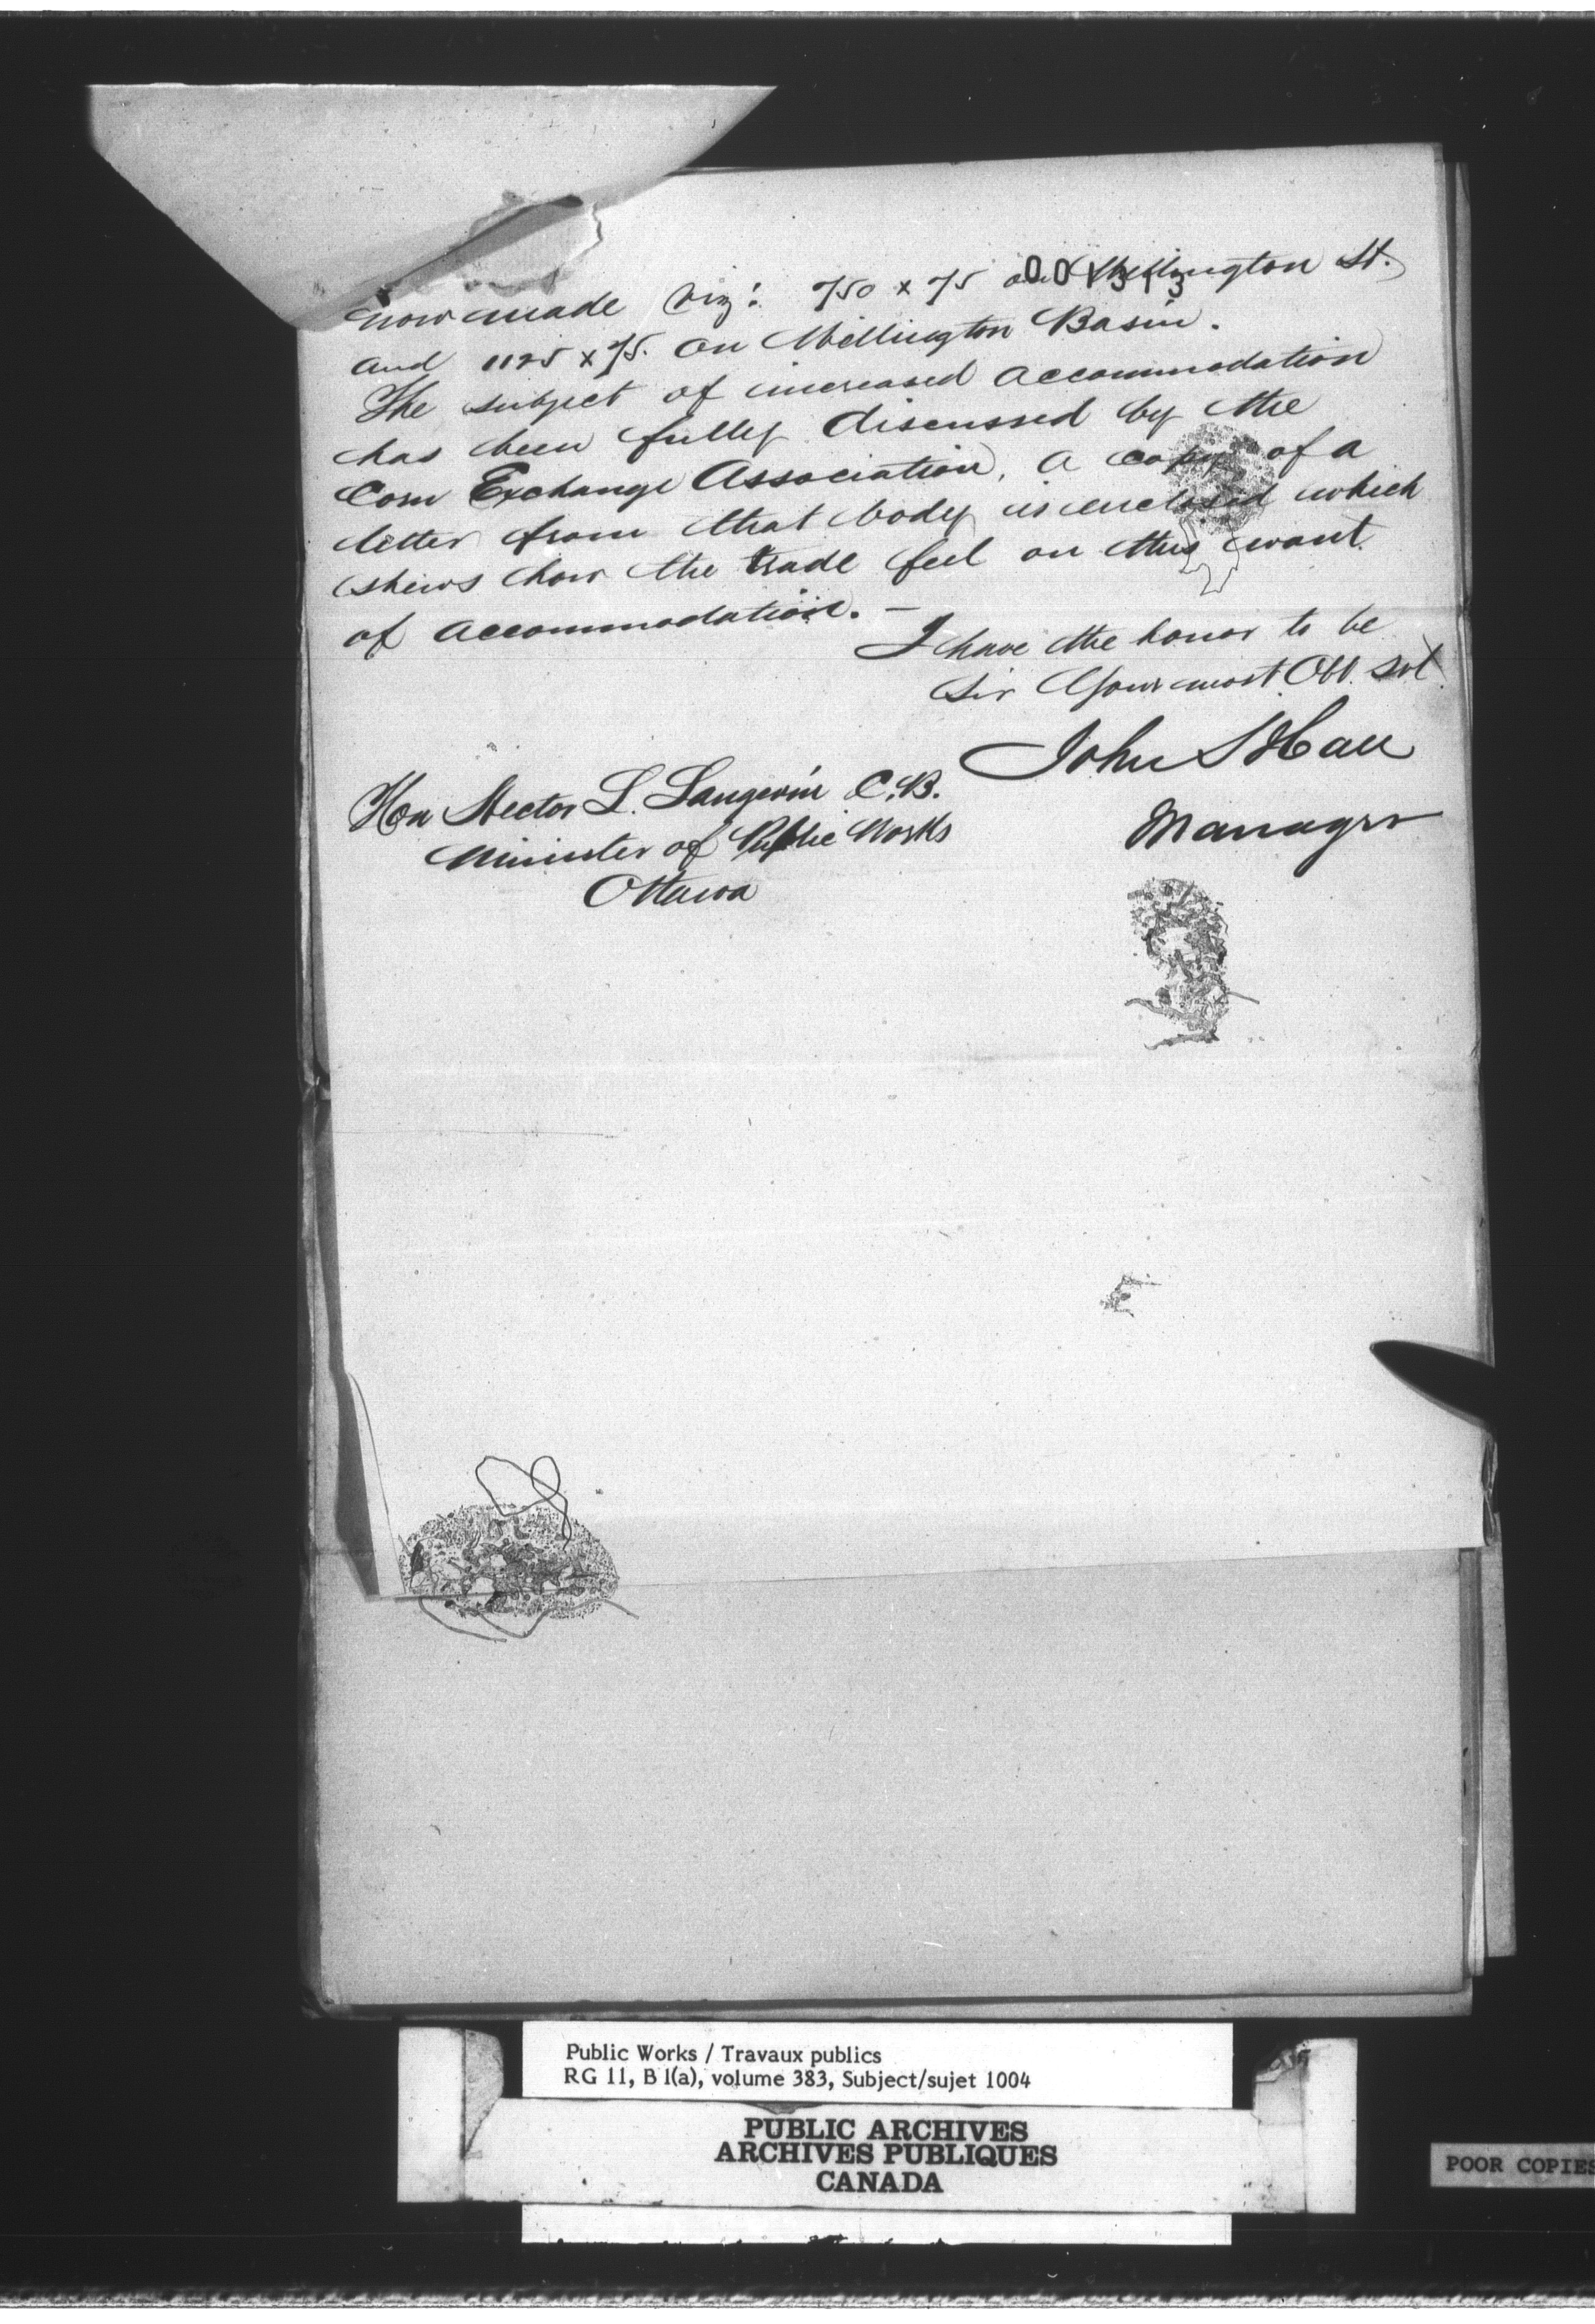 now made viz: 750 x 75 on Wellington St.
and 1125 x 75. on Wellington Basin.
The subject of increased accommodation
has been fully discussed by the
Corn Exchange Association, a copy of a
letter from that body is enclosed which
shews how the trade feel on this want
of accommodation. —
I have the honor to be
Sir Your most Obt. Svt
John S Hall
Manager
Hon Hector L. Langevin C.B.
Minister of Public Works
Ottawa
Public Works / Travaux publics
RG 11, B 1(a), volume 383, Subject/sujet 1004
PUBLIC ARCHIVES
ARCHIVES PUBLIQUES
CANADA
POOR COPIES